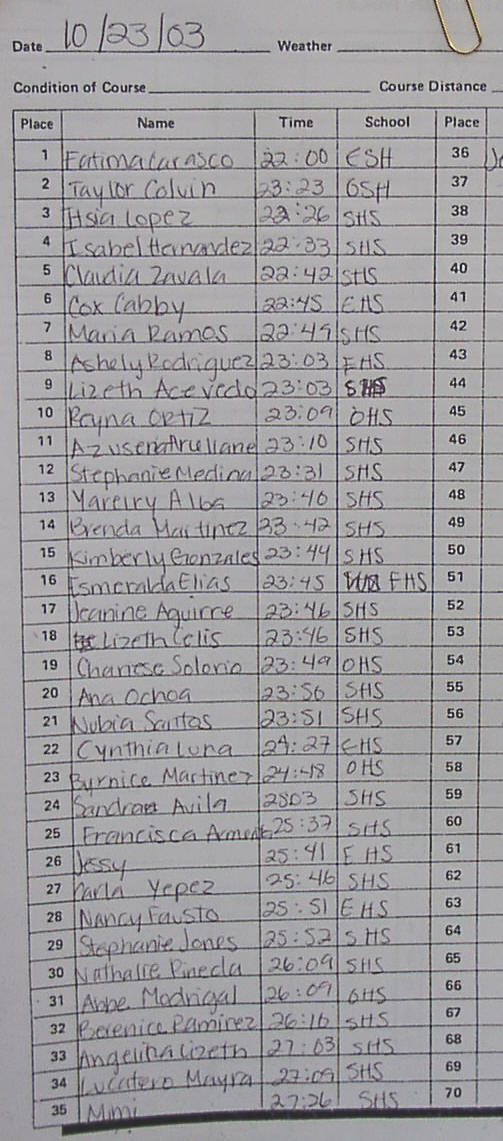 Date 10/23/03 Weather
Condition of Course Course Distance
Place Name Time School Place
1 Fatima Carasco 22:00 ESH 36
2 Taylor Colvin 23:23 OSH 37
3 Hsia Lopez 22:26 SHS 38
4 Isabel Hernandez 22:33 SHS 39
5 Claudia Zavala 22:42 SHS 40
6 Cox Cabby 22:45 EHS 41
7 Maria Ramos 22:49 SHS 42
8 Ashely Rodriguez 23:03 EHS 43
9 Lizeth Acevedo 23:03 SHS 44
10 Reyna Ortiz 23:09 OHS 45
11 Azusena 23:10 SHS 46
12 Stephanie Medina 23:31 SHS 47
13 Alba 23:40 SHS 48
14 Brenda Martinez 23:42 SHS 49
15 Kimberly Gonzales 23:44 SHS 50
16 Esmeralda Elias 23:45 EHS 51
17 Jeanine Aguirre 23:46 SHS 52
18 Lizeth Celis 23:46 SHS 53
19 Solorio 23:49 OHS 54
20 Ana Ochoa 23:50 SHS 55
21 Nubia Santos 23:51 SHS 56
22 Cynthia Luna 24:27 EHS 57
23 Byrnice Martinez 24:48 OHS 58
24 Avila SHS 59
25 Francisca 25:37 SHS 60
26 Jessy 25:41 EHS 61
27 Karla Yepez 25:46 SHS 62
28 Nancy Fausto 25:51 EHS 63
29 Stephanie Jones 25:52 SHS 64
30 Nathalie Pineda 26:09 SHS 65
31 Abbe Modrigal 26:09 OHS 66
32 Berenice Ramirez 26:16 SHS 67
33 Angelina Lizeth 27:03 SHS 68
34 Lucatero Mayra 27:09 SHS 69
35 Mimi 27:26 SHS 70